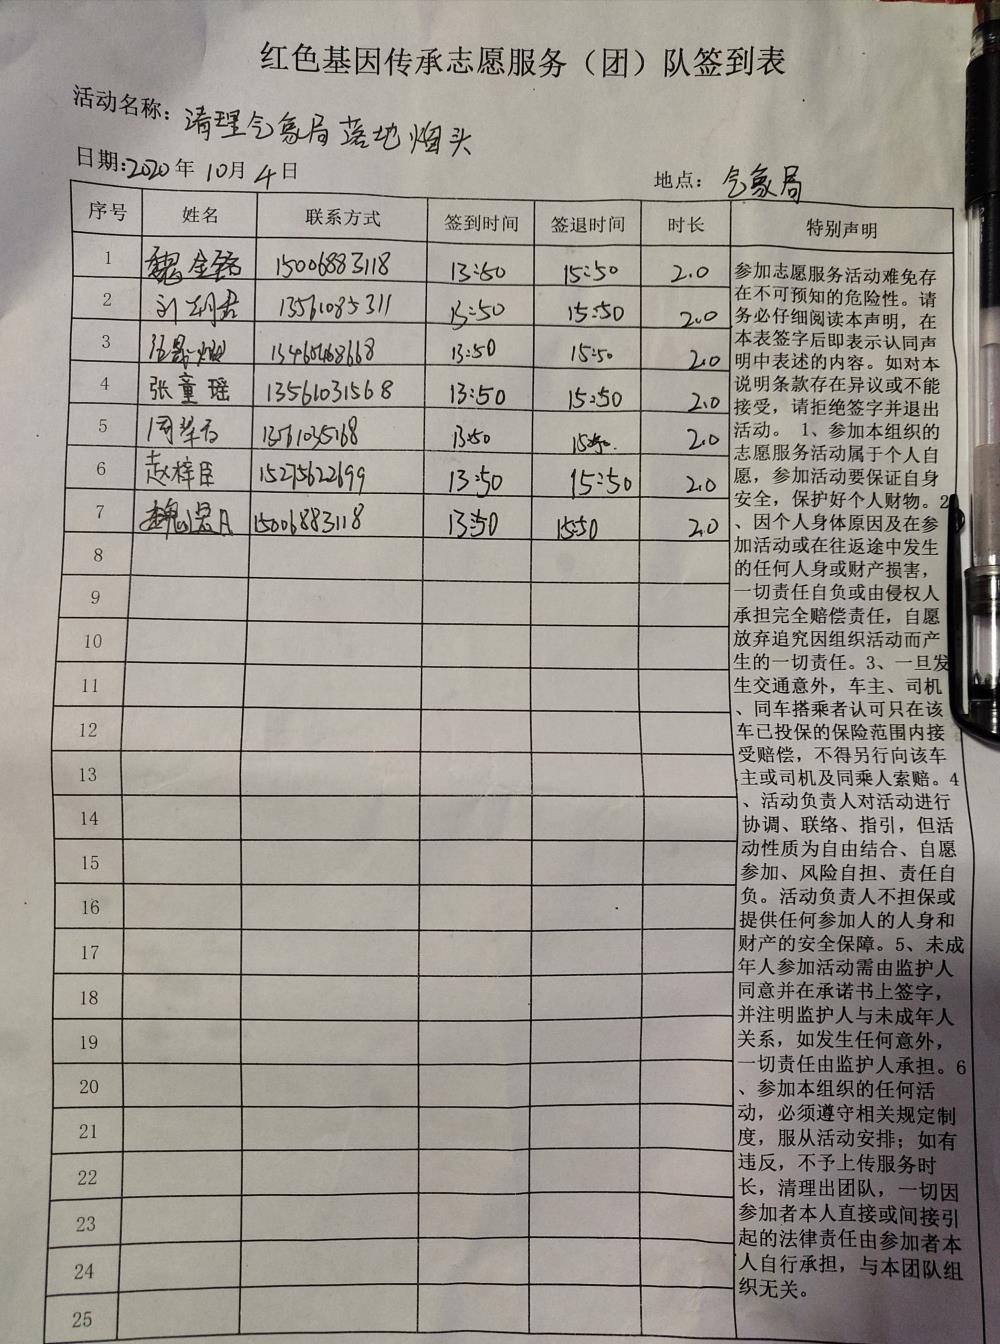 红色基因传承志愿服务（团）队签到表
活动名称：清理气象局落地烟头
日期:2020年10月4日
地点：气象局
序号 姓名 联系方式 签到时间 签退时间 时长 特别声明
1 魏 15006883118 13:50 15:50 2.0
2 刘 13561085311 13:50 15:50 2.0
3 13:50 15:50 2.0
4 张童瑶 13561031568 13:50 15:50 2.0
5 周 13561035168 13:50 15:50. 2.0
6 赵梓臣 15275622699 13:50 15:50 2.0
7 魏 15006883118 13:50 15:50 2.0
8
9
10
11
12
13
14
15
16
17
18
19
20
21
22
23
24
25
参加志愿服务活动难免存
在不可预知的危险性。请
务必仔细阅读本声明，在
本表签字后即表示认同声
明中表述的内容。如对本
说明条款存在异议或不能
接受，请拒绝签字并退出
活动。 1、参加本组织的
志愿服务活动属于个人自
愿，参加活动要保证自身
安全，保护好个人财物。2
、因个人身体原因及在参
加活动或在往返途中发生
的任何人身或财产损害，
一切责任自负或由侵权人
承担完全赔偿责任，自愿
放弃追究因组织活动而产
生的一切责任。3、一旦发
生交通意外，车主、司机
、同车搭乘者认可只在该
车已投保的保险范围内接
受赔偿，不得另行向该车
主或司机及同乘人索赔。4
、活动负责人对活动进行
协调、联络、指引，但活
动性质为自由结合、自愿
参加、风险自担、责任自
负。活动负责人不担保或
提供任何参加人的人身和
财产的安全保障。5、未成
年人参加活动需由监护人
同意并在承诺书上签字，
并注明监护人与未成年人
关系，如发生任何意外，
一切责任由监护人承担。6
、参加本组织的任何活
动，必须遵守相关规定制
度，服从活动安排；如有
违反，不予上传服务时
长，清理出团队，一切因
参加者本人直接或间接引
起的法律责任由参加者本
人自行承担，与本团队组
织无关。